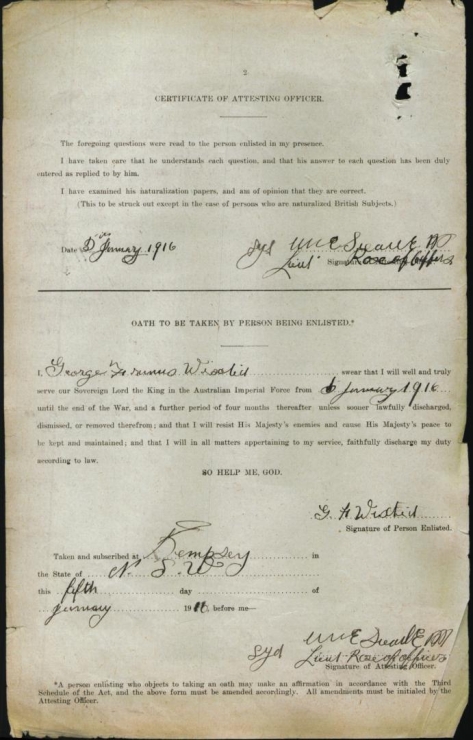 2
CERTIFICATE OF ATTESTING OFFICER.
The foregoing questions were read to the person enlisted in my presence.
I have taken care that he understands each question, and that his answer to each question has been duly
entered as replied to by him.
I have examined his naturalization papers, and am of opinion that they are correct.
(This to be struck out except in the case of persons who are naturalized British Subjects.)
Date January 1916
Syd
Lieut Signature of
OATH TO BE TAKEN BY PERSON BEING ENLISTED.*
I, George swear that I will well and truly
serve our Sovereign Lord the King in the Australian Imperial Force from January 1916
until the end of the War, and a further period of four months thereafter unless sooner lawfully discharged,
dismissed, or removed therefrom; and that I will resist His Majesty's enemies and cause His Majesty's peace to
be kept and maintained; and that I will in all matters appertaining to my service, faithfully discharge my duty
according to law.
SO HELP ME, GOD.
Signature of Person Enlisted.
Taken and subscribed at Kempsey in
the State of N. S. W
this fifth day of
January 1916 before me—
Syd
Lieut of officers
Signature of Attesting Officer.
*A person enlisting who objects to taking an oath may make an affirmation in accordance with the Third
Schedule of the Act, and the above form must be amended accordingly. All amendments must be initialed by the
Attesting Officer.